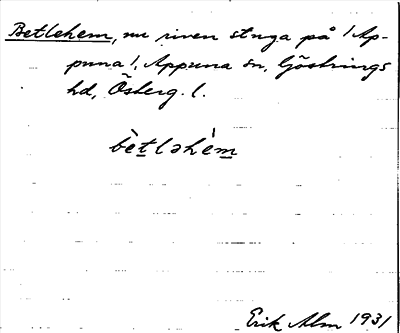 Betlehem, nu riven stuga på /Ap-
puna/, Appuna sn, Göstrings
hd, Österg. l.
bètləhèm
Erik Alm 1931